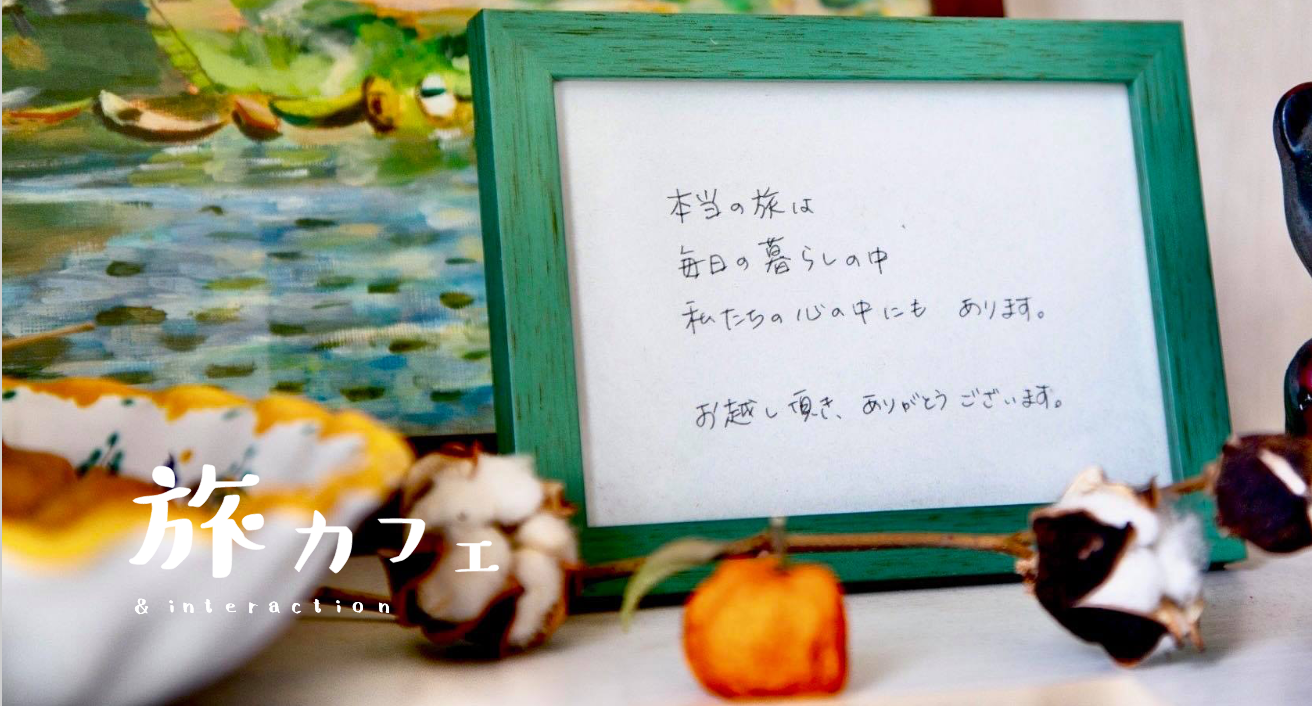 本当の旅は
毎日の暮らしの中
私たちの心の中にも あります。
お越し頂き、ありがとうございます。
旅カフェ
& interaction